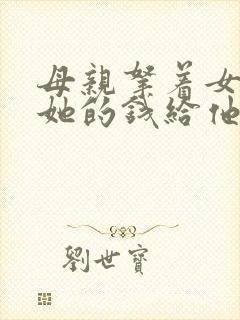 母親拏着女
她的錢給他
劉世寶